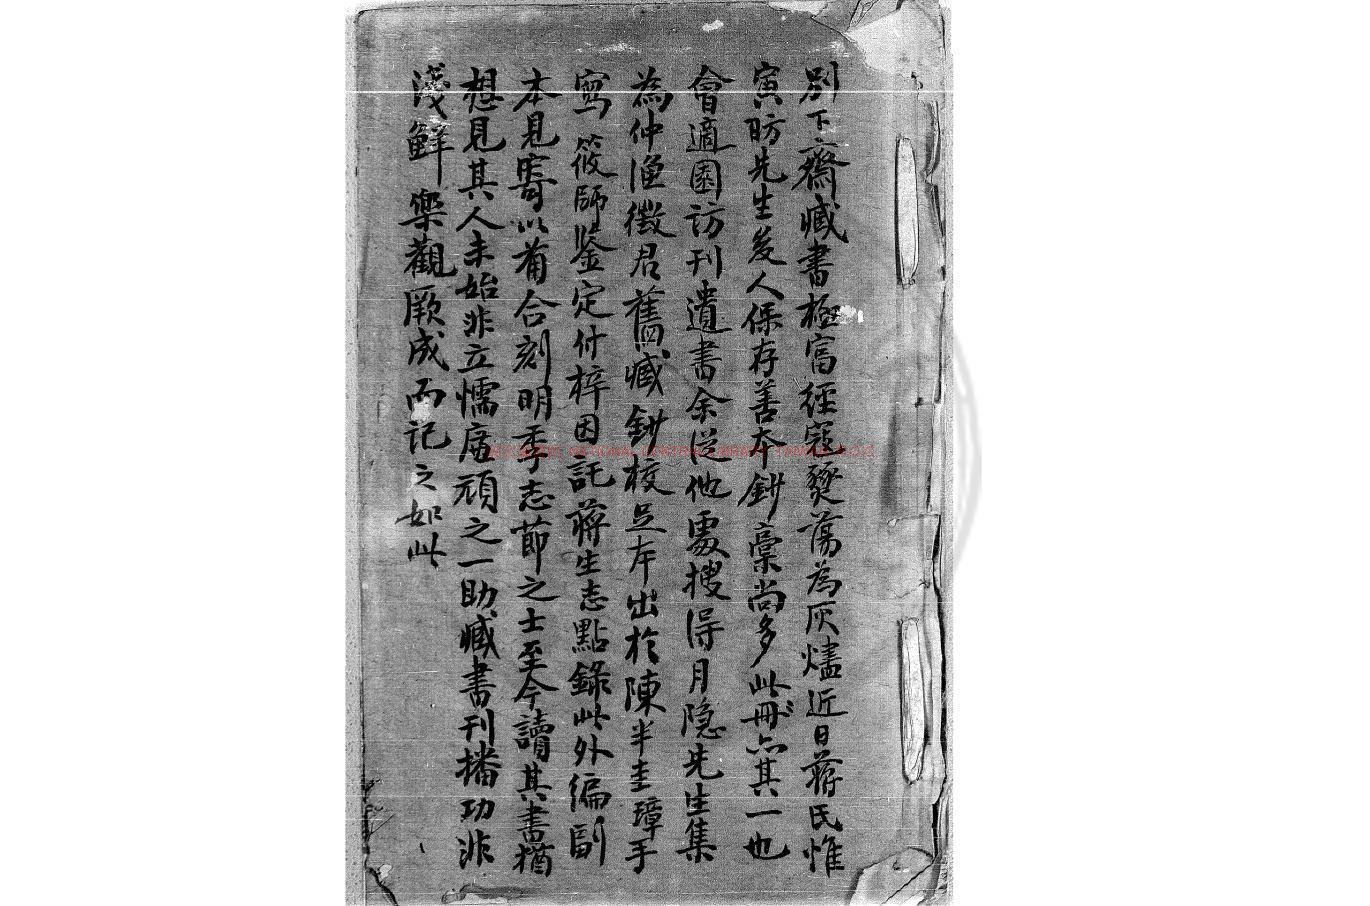 別下齋臧書極富經寇燹蕩為灰燼近日蔣氏惟
寅昉先生後人保存善本鈔稾尚多此冊亦其一也
會適園訪刊遺書余從他處搜得月隐先生集
為仲漁徵君舊臧鈔校足本出於陳半圭璋手
寫筱師鉴定付梓因託蔣生志點錄此外編副
本見寄以葡合刻明季志節之士至今讀其書猶
想見其人未始非立懦廉頑之一助臧書刊播功非
淺鮮樂觀厥成而記之如此
NATIONAL CENTRAL LIBRARY, TAIWAN, R.O.C.